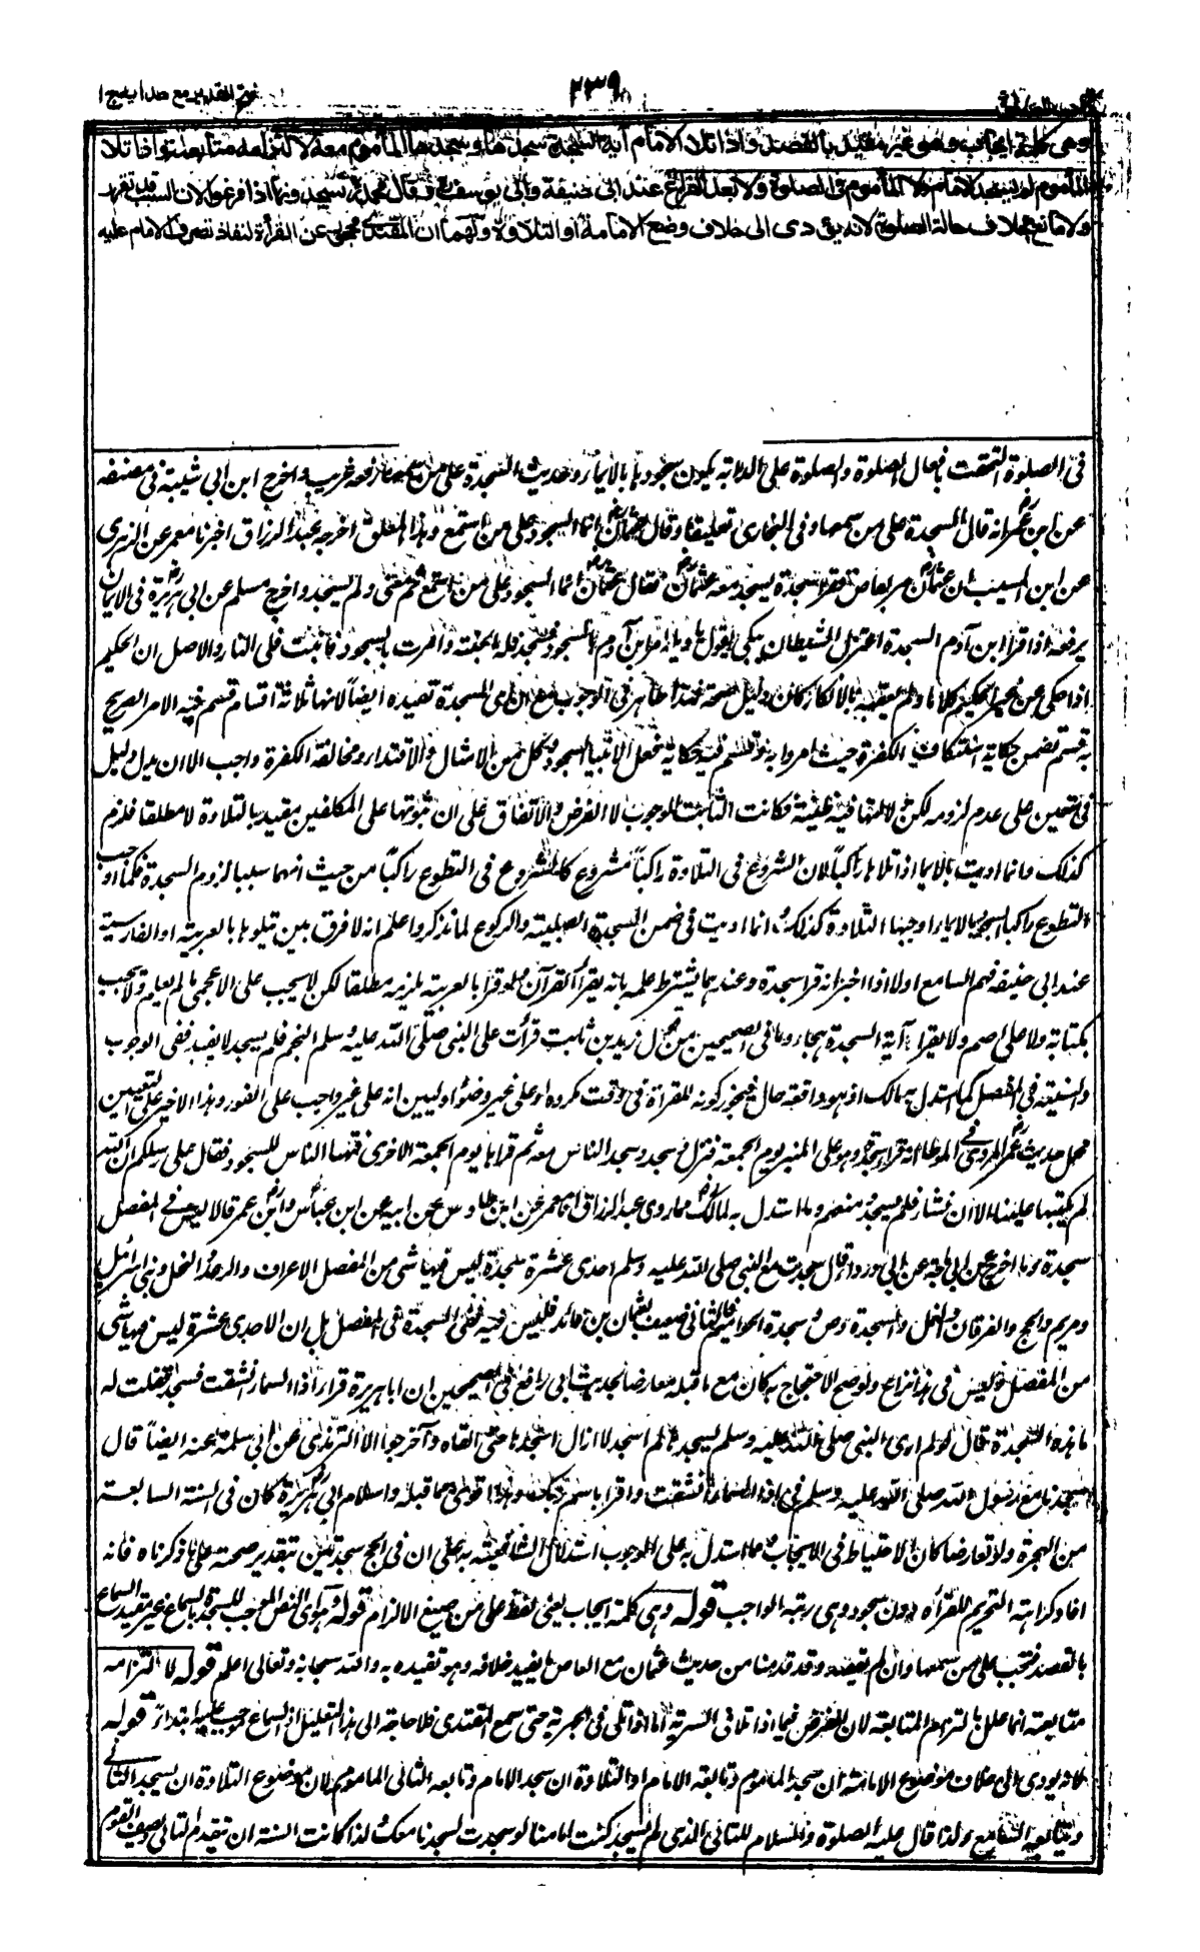 فتح القدير مع هدايه ج ١
٢٣٩
وهى كلمة ايجاب وهو غير مقيد بالقصد واذا تلا الامام آية السجدة سجدها وسجدها المأموم معه لالتزامه متابعته واذا تلا
المأموم لم يسجد الامام ولا المأموم فى الصلوة ولا بعد الفراغ عند ابى حنيفة وابى يوسف وقال محمد يسجدونها اذا فرغوا لان السبب قد تقرر
ولا مانع بخلاف حالة الصلوة لانه يؤدى الى خلاف وضع الامامة او التلاوة ولهما ان المقتدى محجور عن القرأة لنفاذ تصرف الامام عليه
فى الصلوة التحقت بافعال الصلوة والصلوة على الدابة يكون سجودها بالايماء وحديث السجدة على من سمعها رفعه غريب واخرج ابن ابى شيبة فى مصنفه
عن ابن عمر انه قال السجدة على من سمعها وفى البخارى تعليقا وقال عثمان انما السجود على من استمع وهذا المعلق اخرجه عبد الرزاق اخبرنا معمر عن الزهرى
عن ابن المسيب ان عثمان مر بقاص فقرأ سجدة ليسجد معه عثمان فقال عثمان انما السجود على من استمع ثم مضى ولم يسجد واخرج مسلم عن ابى هريرة فى الايمان
يرفعه اذا قرأ ابن آدم السجدة اعتزل الشيطان يبكى يقول يا ويله امر ابن آدم بالسجود فسجد فله الجنة وامرت بالسجود فابيت فلى النار والاصل ان الحكيم
اذا حكى عن غير الحكيم كلاما ولم يعقبه بالانكار كان دليل صحته فهذا ظاهر فى الوجوب مع ان آى السجدة تفيده ايضا لانها ثلاثة اقسام قسم فيه الامر الصريح
به وقسم تضمن حكاية استنكاف الكفرة حيث امروا به وقسم فيه حكاية فعل الانبياء السجود وكل من الامتثال والاقتداء ومخالفة الكفرة واجب الا ان يدل دليل
فى معين على عدم لزومه لكن دلالتها فيه ظنية فكانت الثابت الوجوب لا الفرض والاتفاق على ان ثبوتها على المكلفين مقيد بالتلاوة لا مطلقا فلزم
كذلك وانما اديت بالايماء اذا تلاها راكبا لان الشروع فى التلاوة راكبا مشروع كالشروع فى التطوع راكبا من حيث انهما سببا لزوم السجدة فكما اوجب
التطوع راكبا السجود بالايماء اوجبها التلاوة كذلك وانما اديت فى ضمن السجدة الصلبية والركوع لما نذكر واعلم انه لا فرق بين تلوها بالعربية او الفارسية
عند ابى حنيفة فهم السامع اولا اذا اخبر انه قرأ سجدة وعندهما يشترط علمه بانه يقرأ القرآن فلو قرأ بالعربية يلزمه مطلقا لكن لا يجب على الاعجمى ما لم يعلم ولا يجب
بكتابة ولا على اصم ولا بقراءة آية السجدة بهجاء وما فى الصحيحين من قول زيد بن ثابت قرأت على النبى صلى الله عليه وسلم النجم فلم يسجد لا يفيد نفى الوجوب
والسنية فى المفصل كما استدل به مالك اذ هو واقعة حال فيجوز كونه للقرأة فى وقت مكروه او على غير وضوء او ليبين انه غير واجب على الفور وهذا الاخير على التعيين
محمل حديث عمر المروى فى الموطا انه قرأ سجدة وهو على المنبر يوم الجمعة فنزل وسجد وسجد الناس معه ثم قرأها يوم الجمعة الاخرى فتهيأ الناس للسجود فقال على رسلكم ان الله
لم يكتبها علينا الا ان نشاء فلم يسجد ومنعهم وما استدل به لمالك مما روى عبد الرزاق انا معمر عن ابن طاوس عن ابيه عن ابن عباس وابن عمر قالا ليس فى المفصل
سجدة وما اخرج ابن ماجة عن ابى الدرداء قال سجدت مع النبى صلى الله عليه وسلم احدى عشرة سجدة ليس فيها شىء من المفصل الاعراف والرعد والنحل وبنى اسرائيل
ومريم والحج والفرقان والنمل والسجدة وص وسجدة الحواميم فالثانى ضعيف بعثمان بن فائد فليس فيه نفى السجدة فى المفصل بل ان الاحدى عشرة ليس فيها شىء
من المفصل وليس فى هذا نزاع ولو صح الاحتجاج به كان مع ما قبله معارضا لحديث ابى رافع فى الصحيحين ان ابا هريرة قرأ اذا السماء انشقت فسجد فقلت له
ما هذه السجدة قال لو لم ارى النبى صلى الله عليه وسلم يسجد لم اسجد لا ازال اسجدها حتى القاه وآخر جوا الا الترمذى عن ابى سلمة عنه ايضا قال
سجدنا مع رسول الله صلى الله عليه وسلم فى اذا السماء انشقت واقرأ باسم ربك وهذا اقوى مما قبله واسلام ابى هريرة كان فى السنة السابعة
من الهجرة ولو تعارضا كان الاحتياط فى الايجاب ومما استدل به على الوجوب استدلال الشافعية به على ان فى الحج سجدتين بتقدير صحته على ما ذكرناه فانه
افاد كراهته التحريم للقرأة بدون سجود وهى رتبة الواجب قوله وهى كلمة ايجاب يعنى لفظ على من صيغ الالزام قوله وهو اى النص الموجب للسجدة بالسماع غير مقيد السماع
بالقصد فتجب على من سمعها وان لم يقصد وقد قدمنا من حديث عثمان مع القاص ما يفيد خلافه وهو تقييده به والله سبحانه وتعالى اعلم قوله لالتزامه
متابعته انما علل بالتزام المتابعة لان الغرض فيما اذا تلا فى السرية اما اذا تلى فى الجهرية حتى سمع المقتدى فلا حاجة الى هذا التعليل اذ السماع موجب عليه ابتداء قوله
لانه يؤدى الى خلاف موضوع الامامة ان سجد المأموم وتابعه الامام او التلاوة ان سجد الامام وتابعه التالى المأموم لان موضوع التلاوة ان يسجد التالى
ويتابعه السامع ولذا قال عليه الصلوة والسلام للتالى الذى لم يسجد كنت امامنا لو سجدت لسجدنا معك ولذا كانت السنة ان يتقدم التالى ويصف القوم